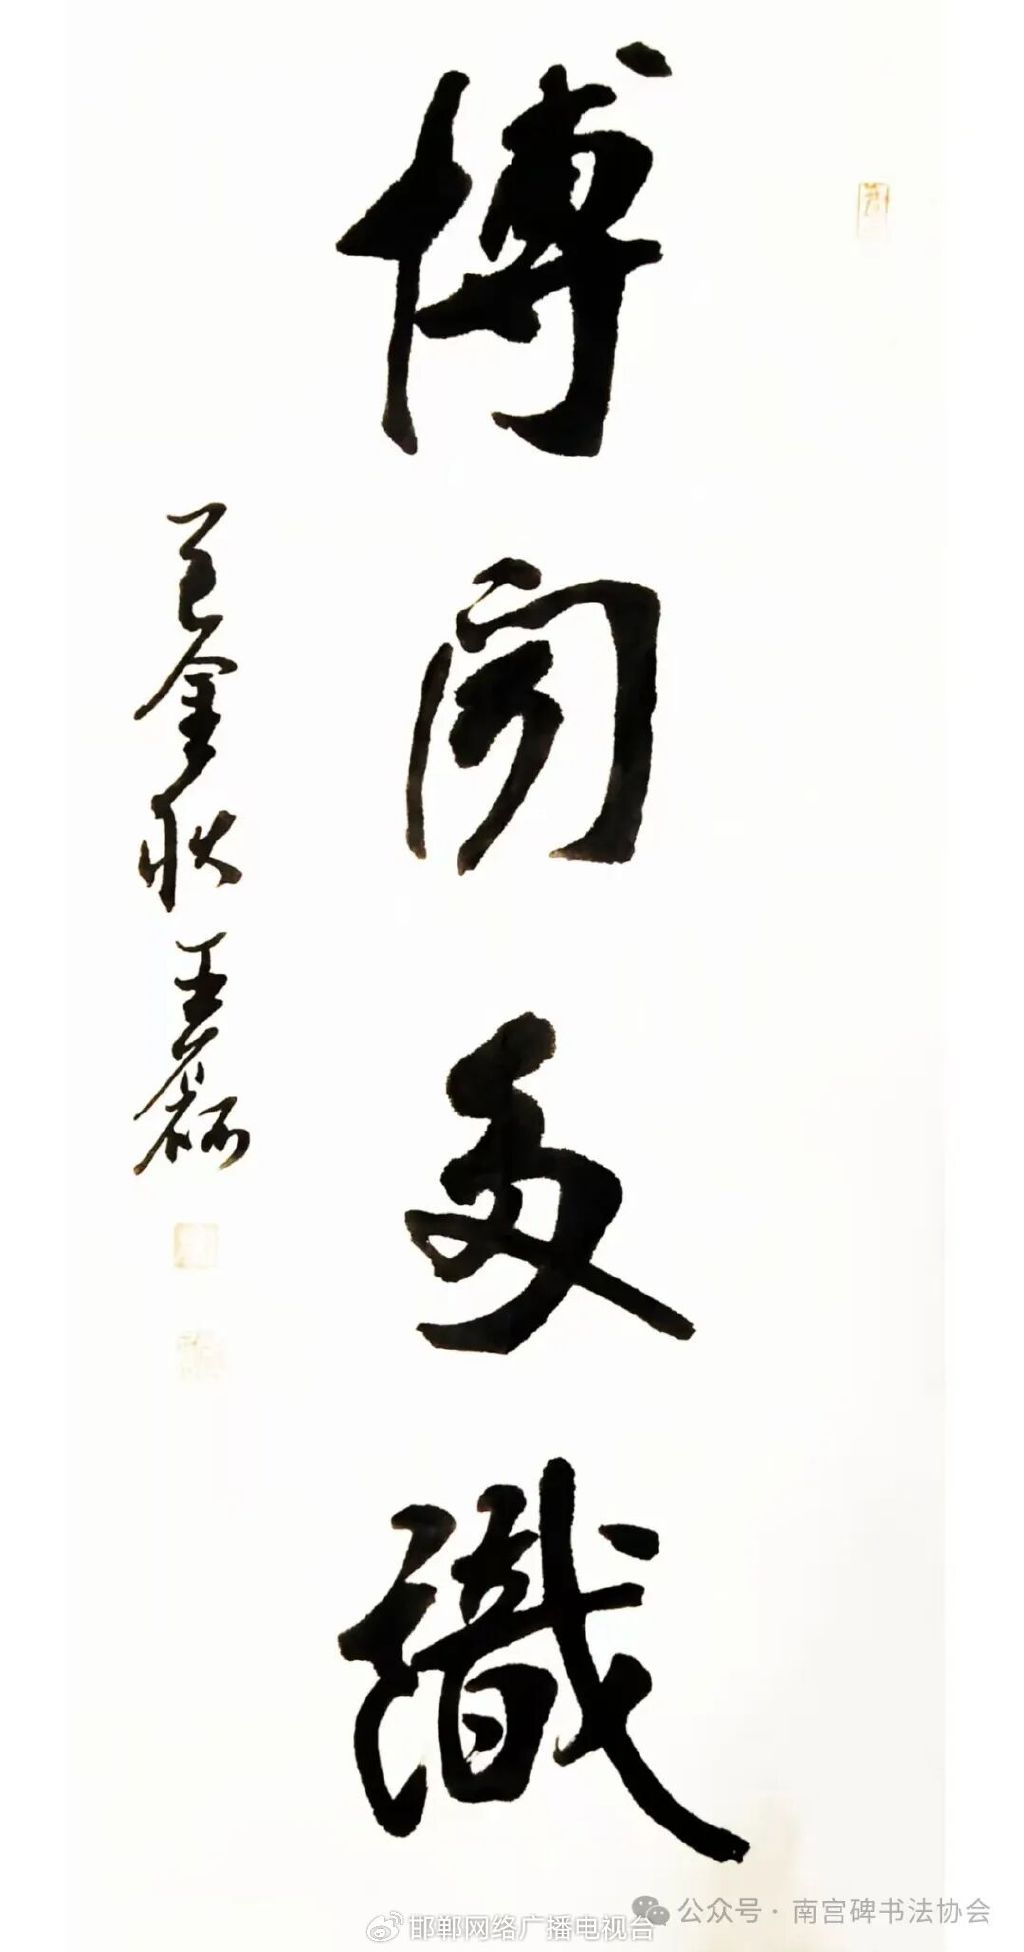 博闻多識
乙巳金秋王磊
公众号 · 南宫碑书法协会
邯郸网络广播电视台